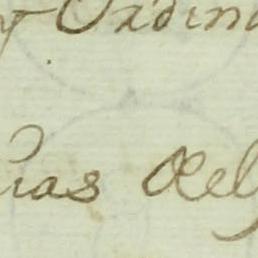 y Ordina
uas Del